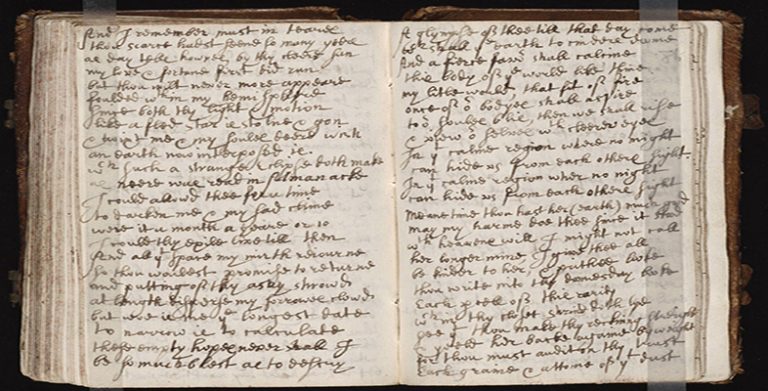 And I remember must in teares
thou scarce hadst seene so many yeers
as day tells howres, by thy cleere sun
my love & fortune first did run
but thou wilt never more appeare
foulded wthin my hemispheare
since both thy light & motion
like a fled star is gon
& twixt me & my soules deere wish
an earth now interposed is.
wch such a strange Eclipse doth make
as neere was read in Almanacke
I could allowe thee for a time
to darken me & my sad clime
were it a month a yeare or 10
I would thy exile live till then
And all yt space my mirth adiourne
so thou wouldest promise to returne
and putting of thy ashy shrowd
at length disperse my sorrowes clowd
but woe is me ye longest date
to narrow is to calculate
these empty hopes never shall I
be so much blest as to descry
A glympse of thee till that day come
wch shall ye earth to cinders doome
And a fierce feavr shall calcine
the body of ye world like thine
my little world, that fit of fire
once of or bodyes shall aspire
to or soules blis, then we shall rise
& view or selves wth cleerer eyes
In yt calme region where no night
can hide us from each others sight.
In yt calme region wher no night
can hide us from each others sight
Meane time thou hast her (earth) much good
may my harme doe thee since it stood
wth heavens will I might not call
her longer mine, I give thee all
thou write into thy domesday boke
Each of this rarity
wthin thy closet shrined doth lye
see yt thou make thy reckning streight
& yeeld her backe againe by weight
for thou must audit on thy trust
Each graine & attome of yt dust